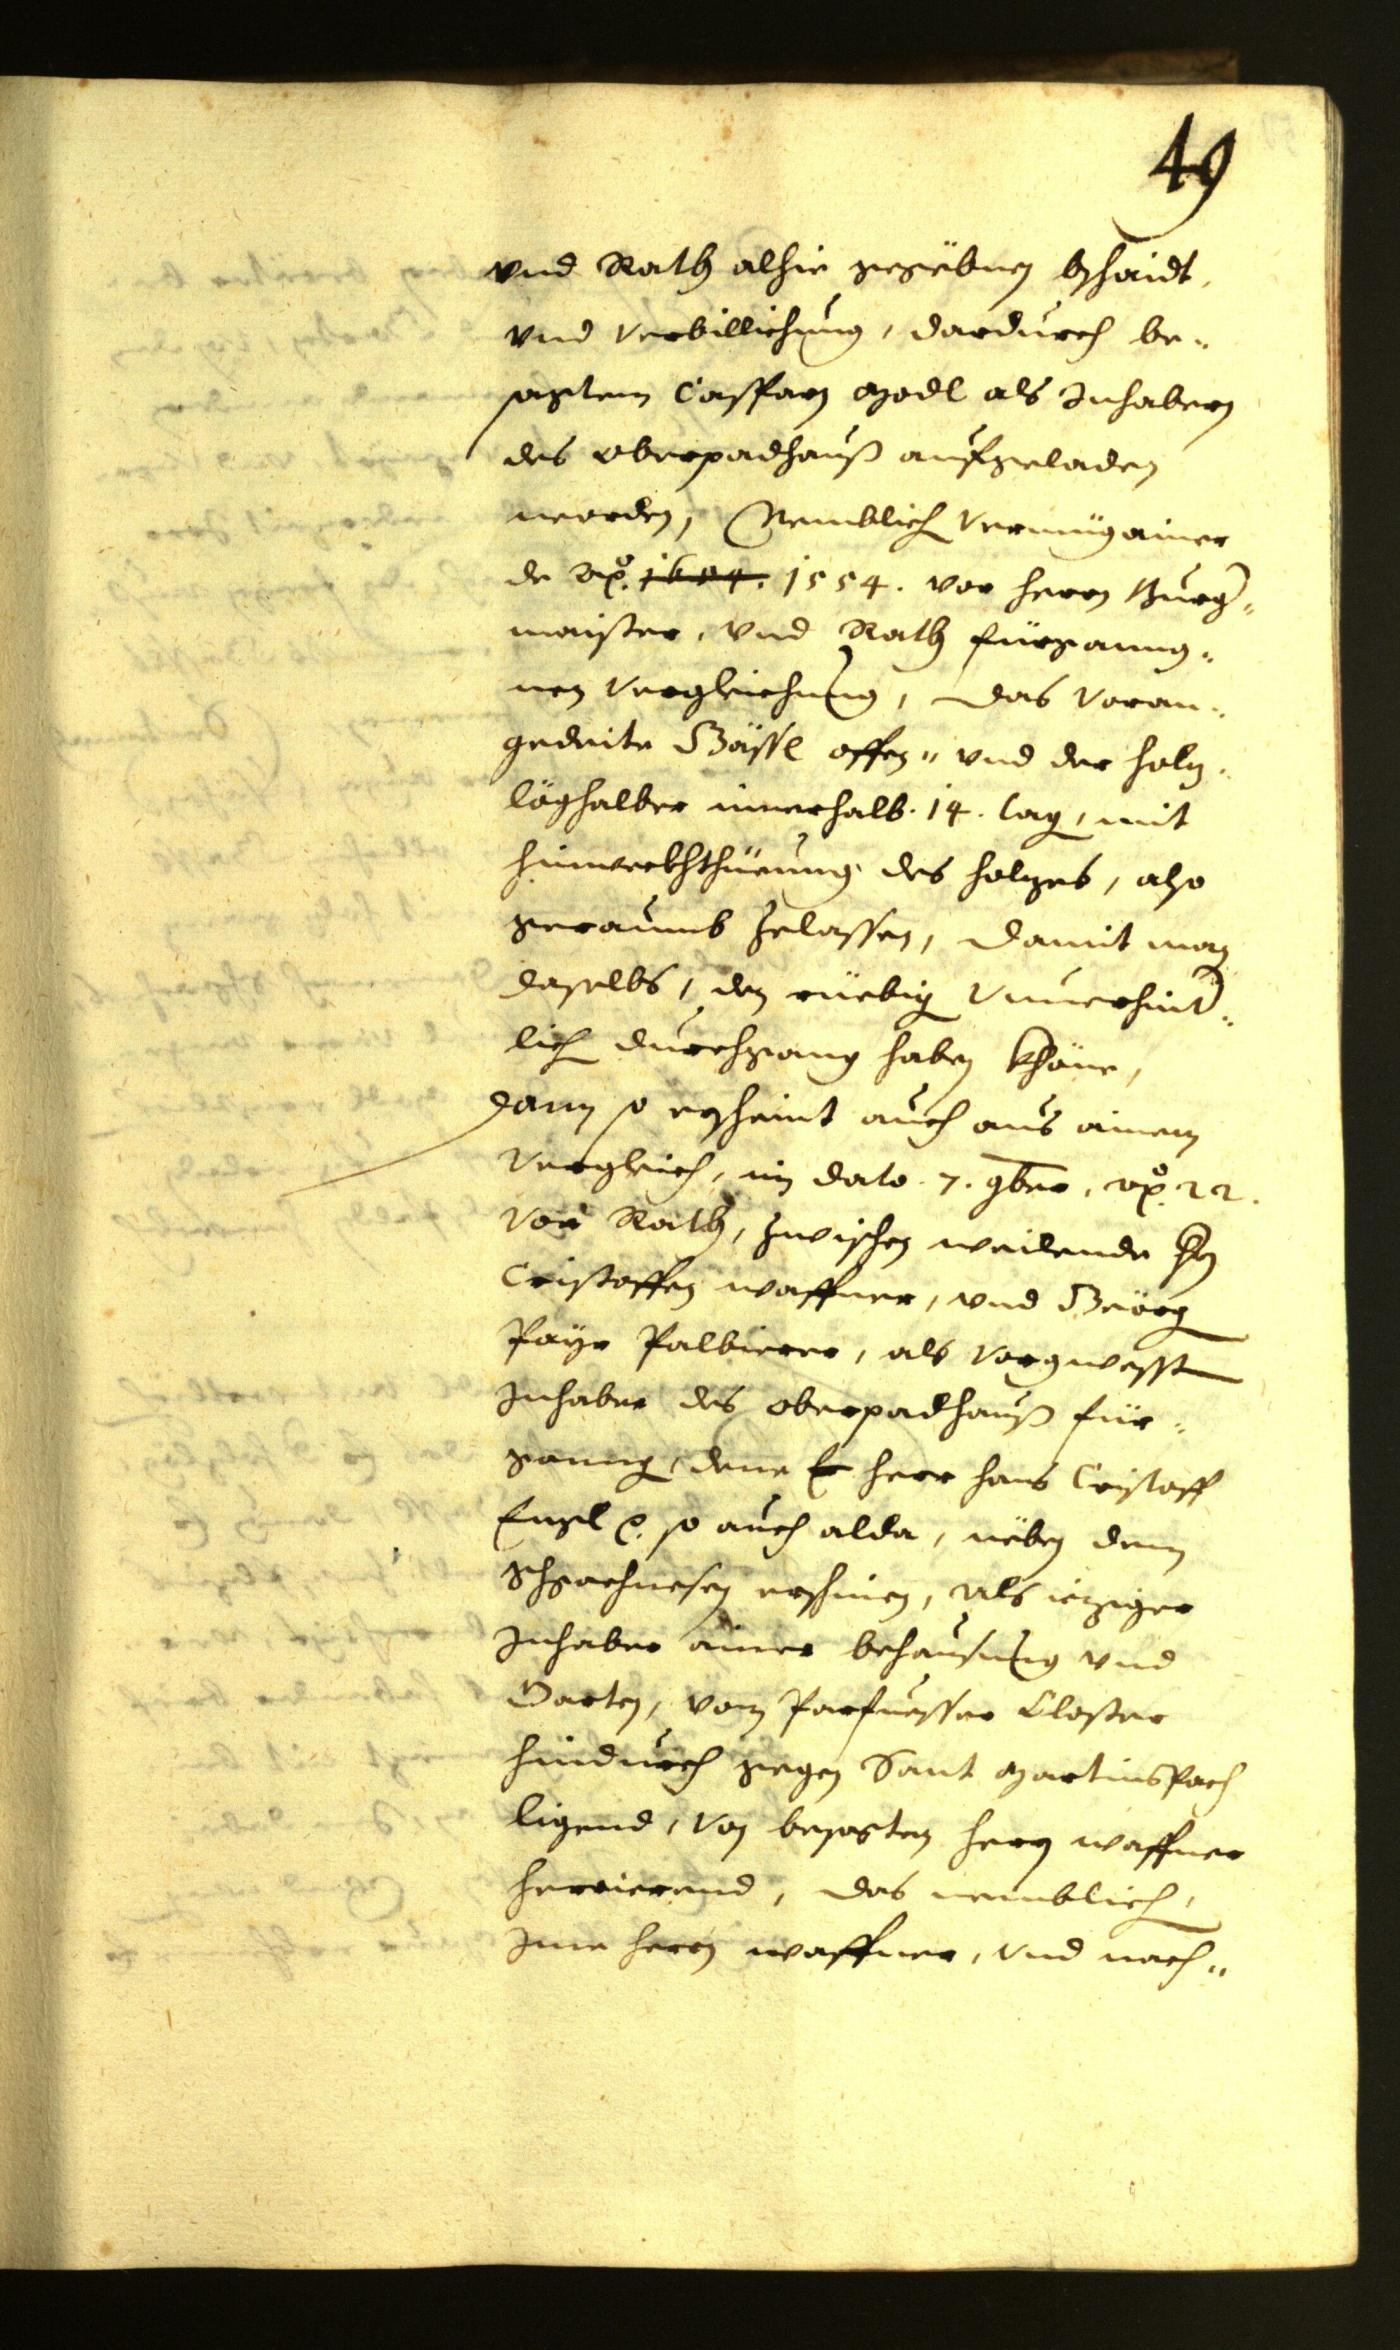 49
vnd Rath alhie gegëbnen bschaidt,
vnd Verbillichung, dardurch be„
sagtem Casparn Modl als Inhabern
des oberpadhauß aufgeladen
worden, Nemblich Vermüg ainer
de Ao. 1654. 1554. vor herrn Burg„
maister, vnd Rath fürganng„
nen Vergleichung, das Voran„
gedeite Gässl offen„ vnd der holz„
löghalber innerhalb. 14. tag, mit
hinweckhthüeung des holzes, also
geraumb zelassen, damit man
daselbs, den rüebig Vnuerhint„
lich durchgang haben khöne,
dann so erscheint auch aus ainem
Vergleich, in dato 7. 9ber, Ao. 22.
Vor Rath, zwischen weilende hn
Cristoffen waffner, vnd Geörg
Payr Palbierer, als Vorgwesst
Inhaber des oberpadhauß für„
gangen, deme herr hans Cristoff
Engl so auch alda, nëben dem
Gschpachnesen erschinen, als ieziger
Inhaber ainer behausung vnd
Garten, vom Parfuesser Closter
hindurch gegen Sant Martinspach
ligend, Von besagten herrn waffner
herrierend, das nemblich,
Ime herrn waffner, vnd nach„